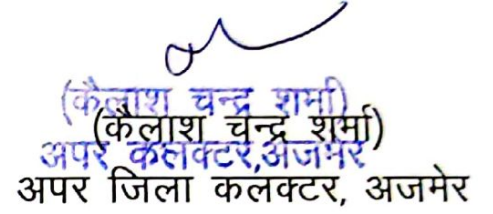 (कैलाश चन्द्र शर्मा)
(कैलाश चन्द्र शर्मा)
अपर कलक्टर,अजमेर
अपर जिला कलक्टर, अजमेर